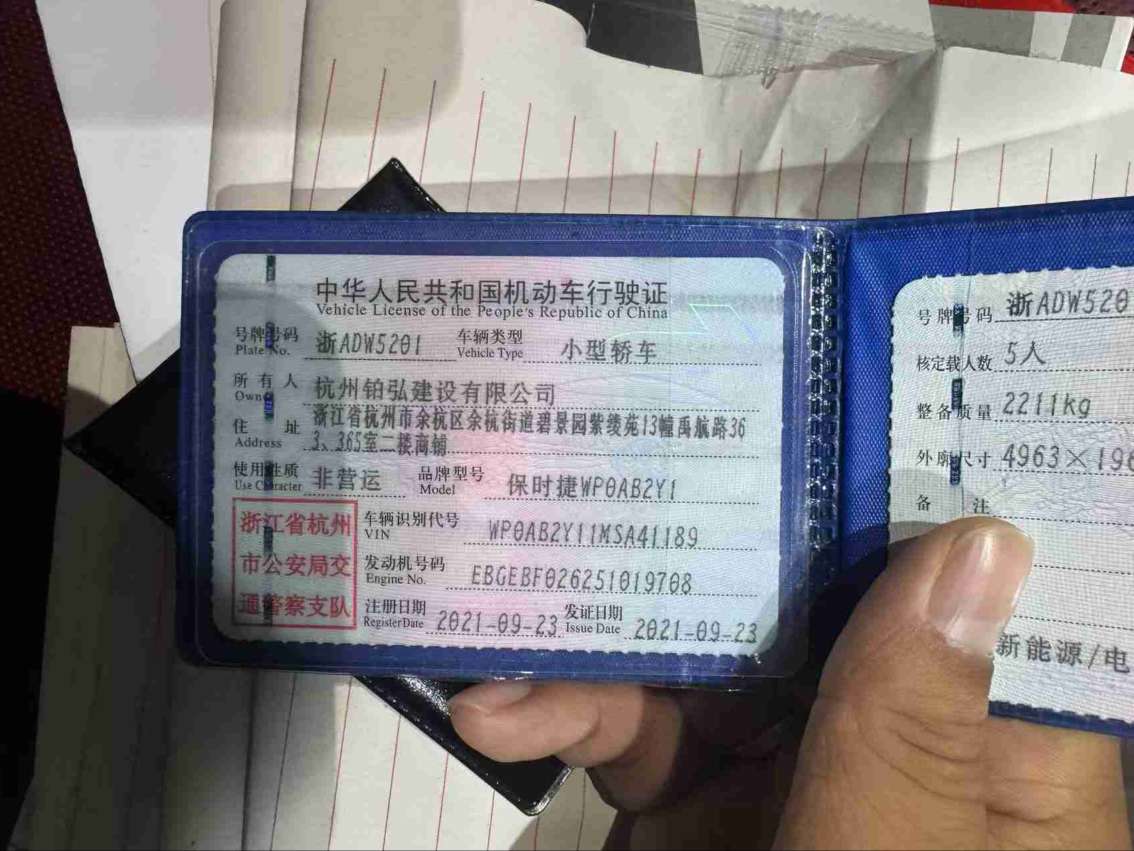 中华人民共和国机动车行驶证
Vehicle License of the People's Republic of China
号牌号码 浙ADW5201 车辆类型 小型轿车
Plate No. Vehicle Type
所有人 杭州铂弘建设有限公司
Owner
住址 浙江省杭州市余杭区余杭街道碧景园紫绫苑13幢禹航路36
Address 3、365室二楼商铺
使用性质 非营运 品牌型号 保时捷WP0AB2Y1
Use Character Model
浙江省杭州
市公安局交
通警察支队
车辆识别代号 WP0AB2Y11MSA41189
VIN
发动机号码 EBGEBF026251019708
Engine No.
注册日期 2021-09-23 发证日期 2021-09-23
Register Date Issue Date
号牌号码 浙ADW520
核定载人数 5人
整备质量 2211kg
外廓尺寸 4963×196
备注
新能源/电